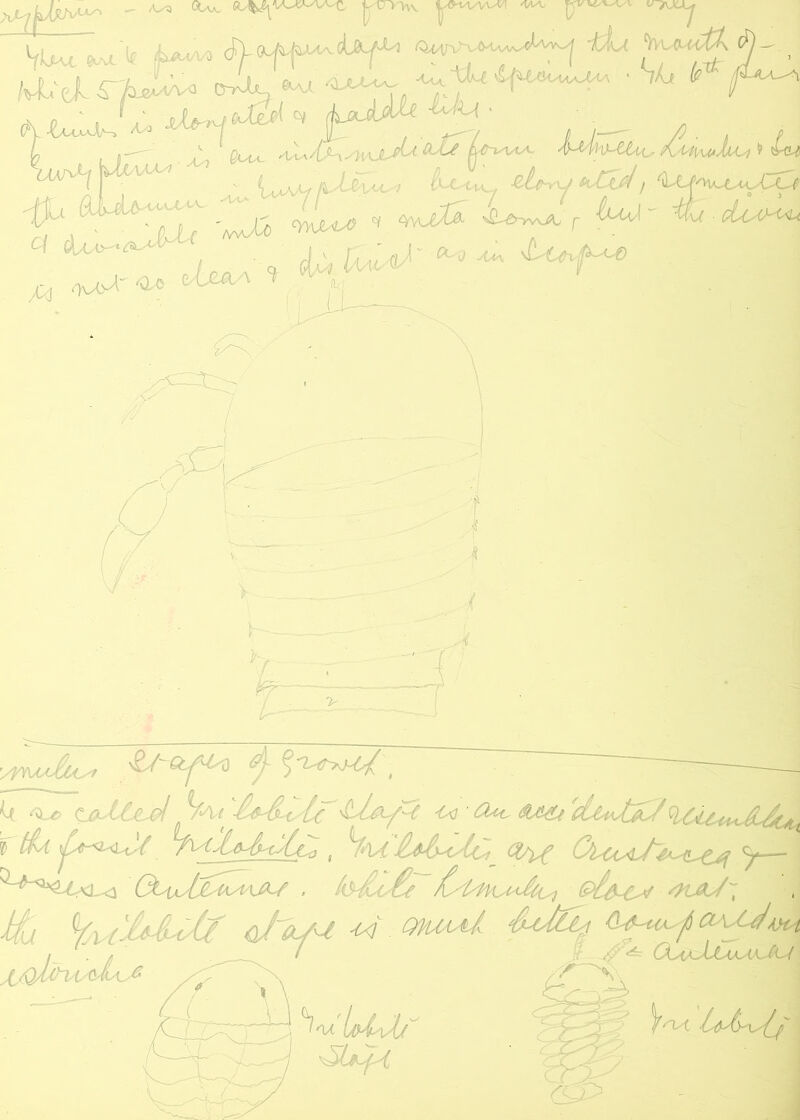 Eurypterus - is an aquatic form found in fossil only
There are 6 pairs of appendages surrounding the mouth of
which 5 pairs only are seen in the specimen. The 6th pair
of limbs is elongated & paddle like.
Eurypterus is an intermediate form between Limulus &
the abdomen in Eurypterus being elongated, segmented
& divisible into meso & meta soma, but the divis
is not so clear & distinct as in Scorpio
2
mulus Stages of growth.
so called Trilobite Stage is an accidental resemblan
the fossil Trilobites. Trilobites are Crustacea &
possess Antennae. While Limulus does not.
the Trilobite stage is much better compared wi
Antennae
Trilobite
Stage
Trilobite